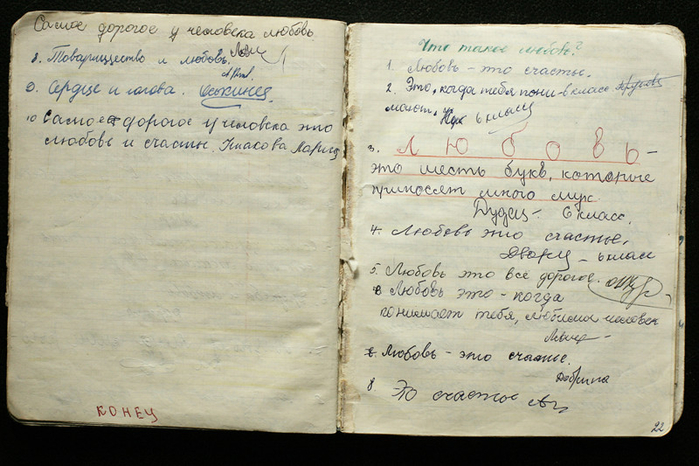 Самое дорогое у человека любовь.
8. Товарищество и любовь.
9. Сердце и голова.
10 Самое дорогое у человека это
любовь и счастье.
КОНЕЦ
Что такое любовь?
1. Любовь - это счастье.
2. Это, когда тебя
6 класс
3. ЛЮБОВЬ -
это шесть букв, которые
приносят много мук
Дудец - 6 класс.
4. Любовь это счастье.
- 6 класс
5. Любовь это всё дорогое.
6 Любовь это - когда
понимает тебя, любимый человек
7. Любовь - это счастье.
8. Это счастье
22